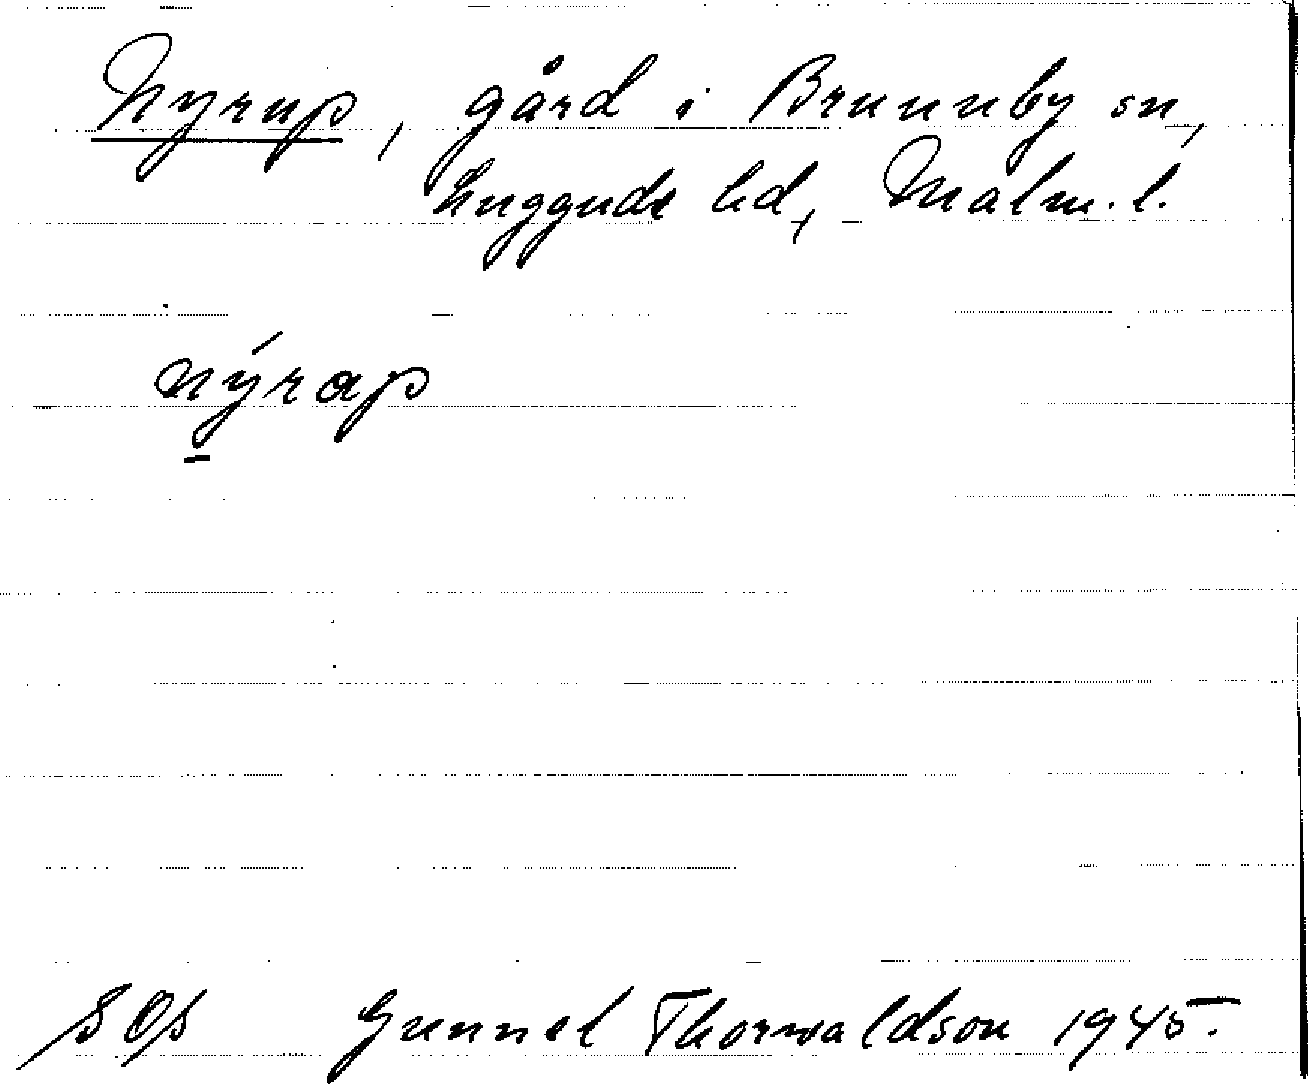 Nyrup, gård i Brunnby sn,
Luggude hd, Malm. l.
nýrap
SOS Gunnel Thorwaldson 1945.